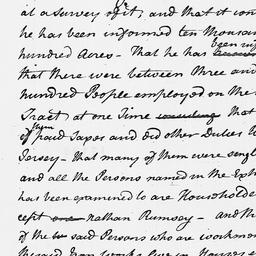 at a survey of it, and that it con
he has been informed ten thousan
hundred Acres - That he has been inf
that there were between three and
hundred People employed on the
Tract at one Time that
of them paid Taxes and did other Duties
Jersey - that many of them were singl
and all the Persons named in the Exh
has been examined to are Householde
cept Nathan Rumsey - and th
of the said Persons who are workmen
the said Iron Works live in Houses